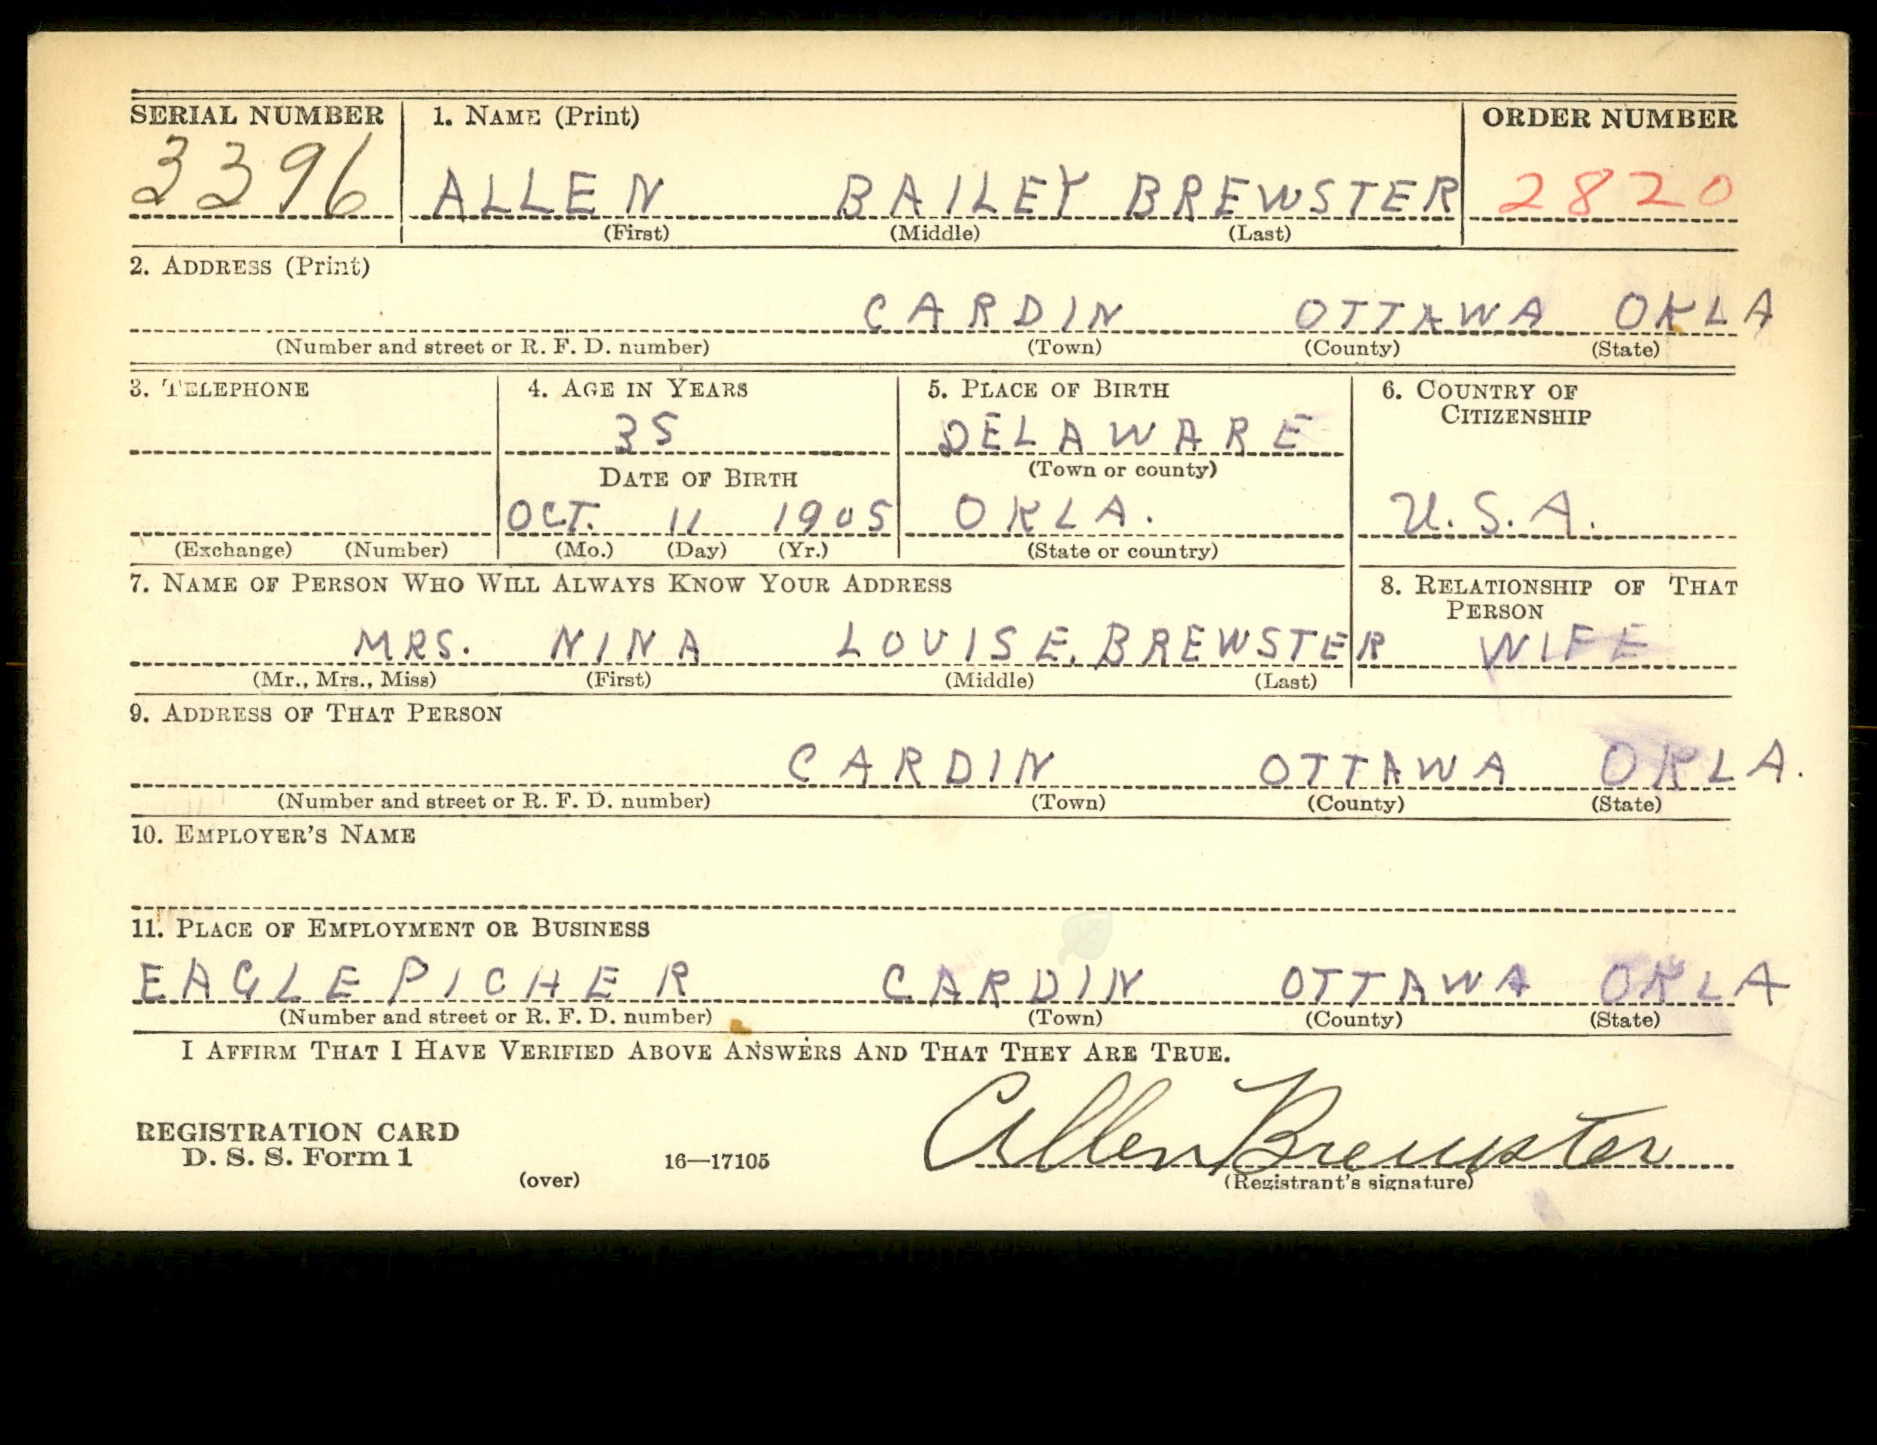 SERIAL NUMBER 1. NAME (Print) ORDER NUMBER
3396 ALLEN BAILEY BREWSTER 2820
(First) (Middle) (Last)
2. ADDRESS (Print)
CARDIN OTTAWA OKLA
(Number and street or R. F. D. number) (Town) (County) (State)
3. TELEPHONE 4. AGE IN YEARS 5. PLACE OF BIRTH 6. COUNTRY OF
CITIZENSHIP
35 DELAWARE
DATE OF BIRTH (Town or county)
OCT. 11 1905 OKLA. U.S.A.
(Exchange) (Number) (Mo.) (Day) (Yr.) (State or country)
7. NAME OF PERSON WHO WILL ALWAYS KNOW YOUR ADDRESS 8. RELATIONSHIP OF THAT
PERSON
MRS. NINA LOUISE. BREWSTER WIFE
(Mr., Mrs., Miss) (First) (Middle) (Last)
9. ADDRESS OF THAT PERSON
CARDIN OTTAWA OKLA.
(Number and street or R. F. D. number) (Town) (County) (State)
10. EMPLOYER'S NAME
11. PLACE OF EMPLOYMENT OR BUSINESS
EAGLE PICHER CARDIN OTTAWA OKLA
(Number and street or R. F. D. number) (Town) (County) (State)
I AFFIRM THAT I HAVE VERIFIED ABOVE ANSWERS AND THAT THEY ARE TRUE.
REGISTRATION CARD
D. S. S. Form 1 16—17105 Allen Brewster
(over) (Registrant's signature)